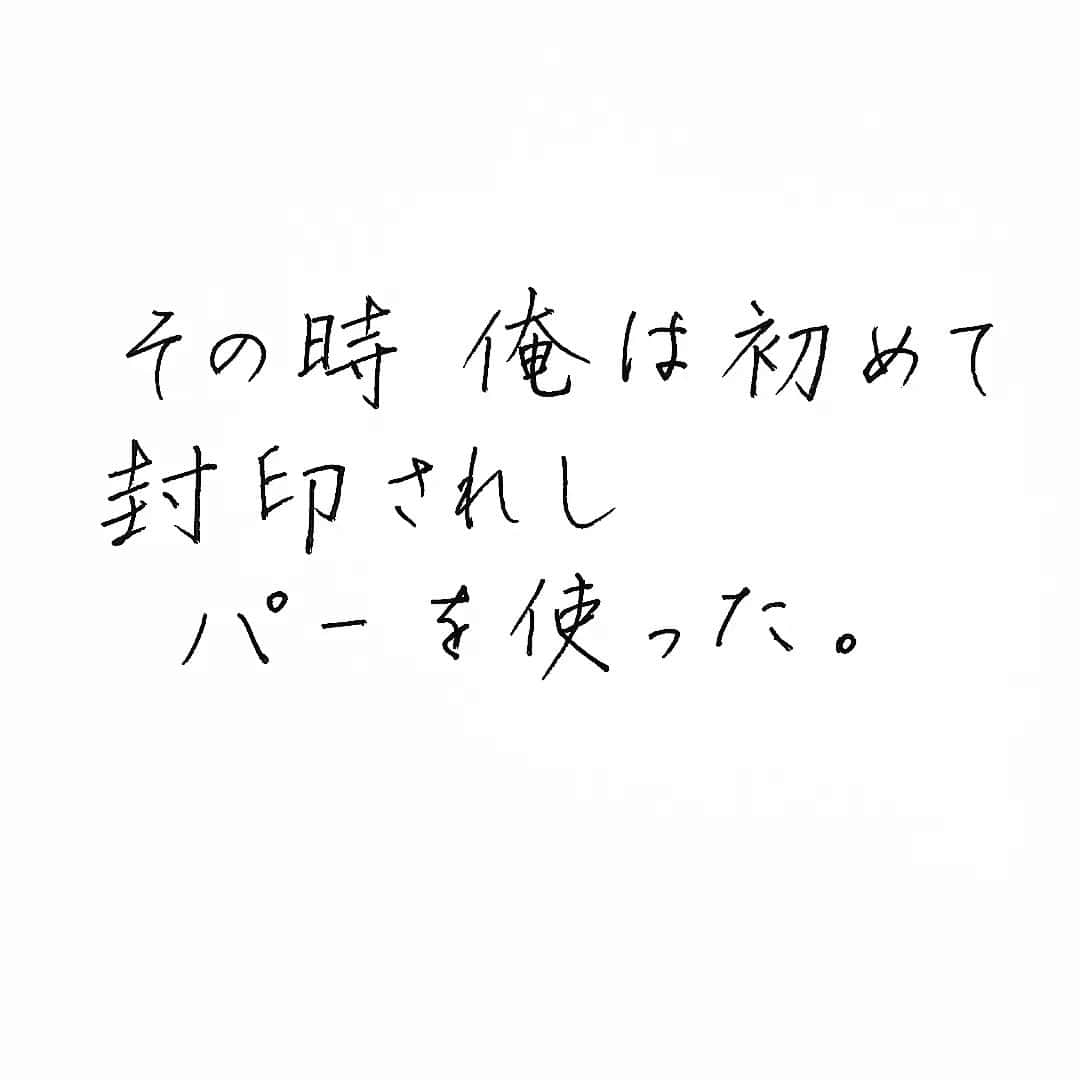 その時 俺は初めて
封印されし
パーを使った。